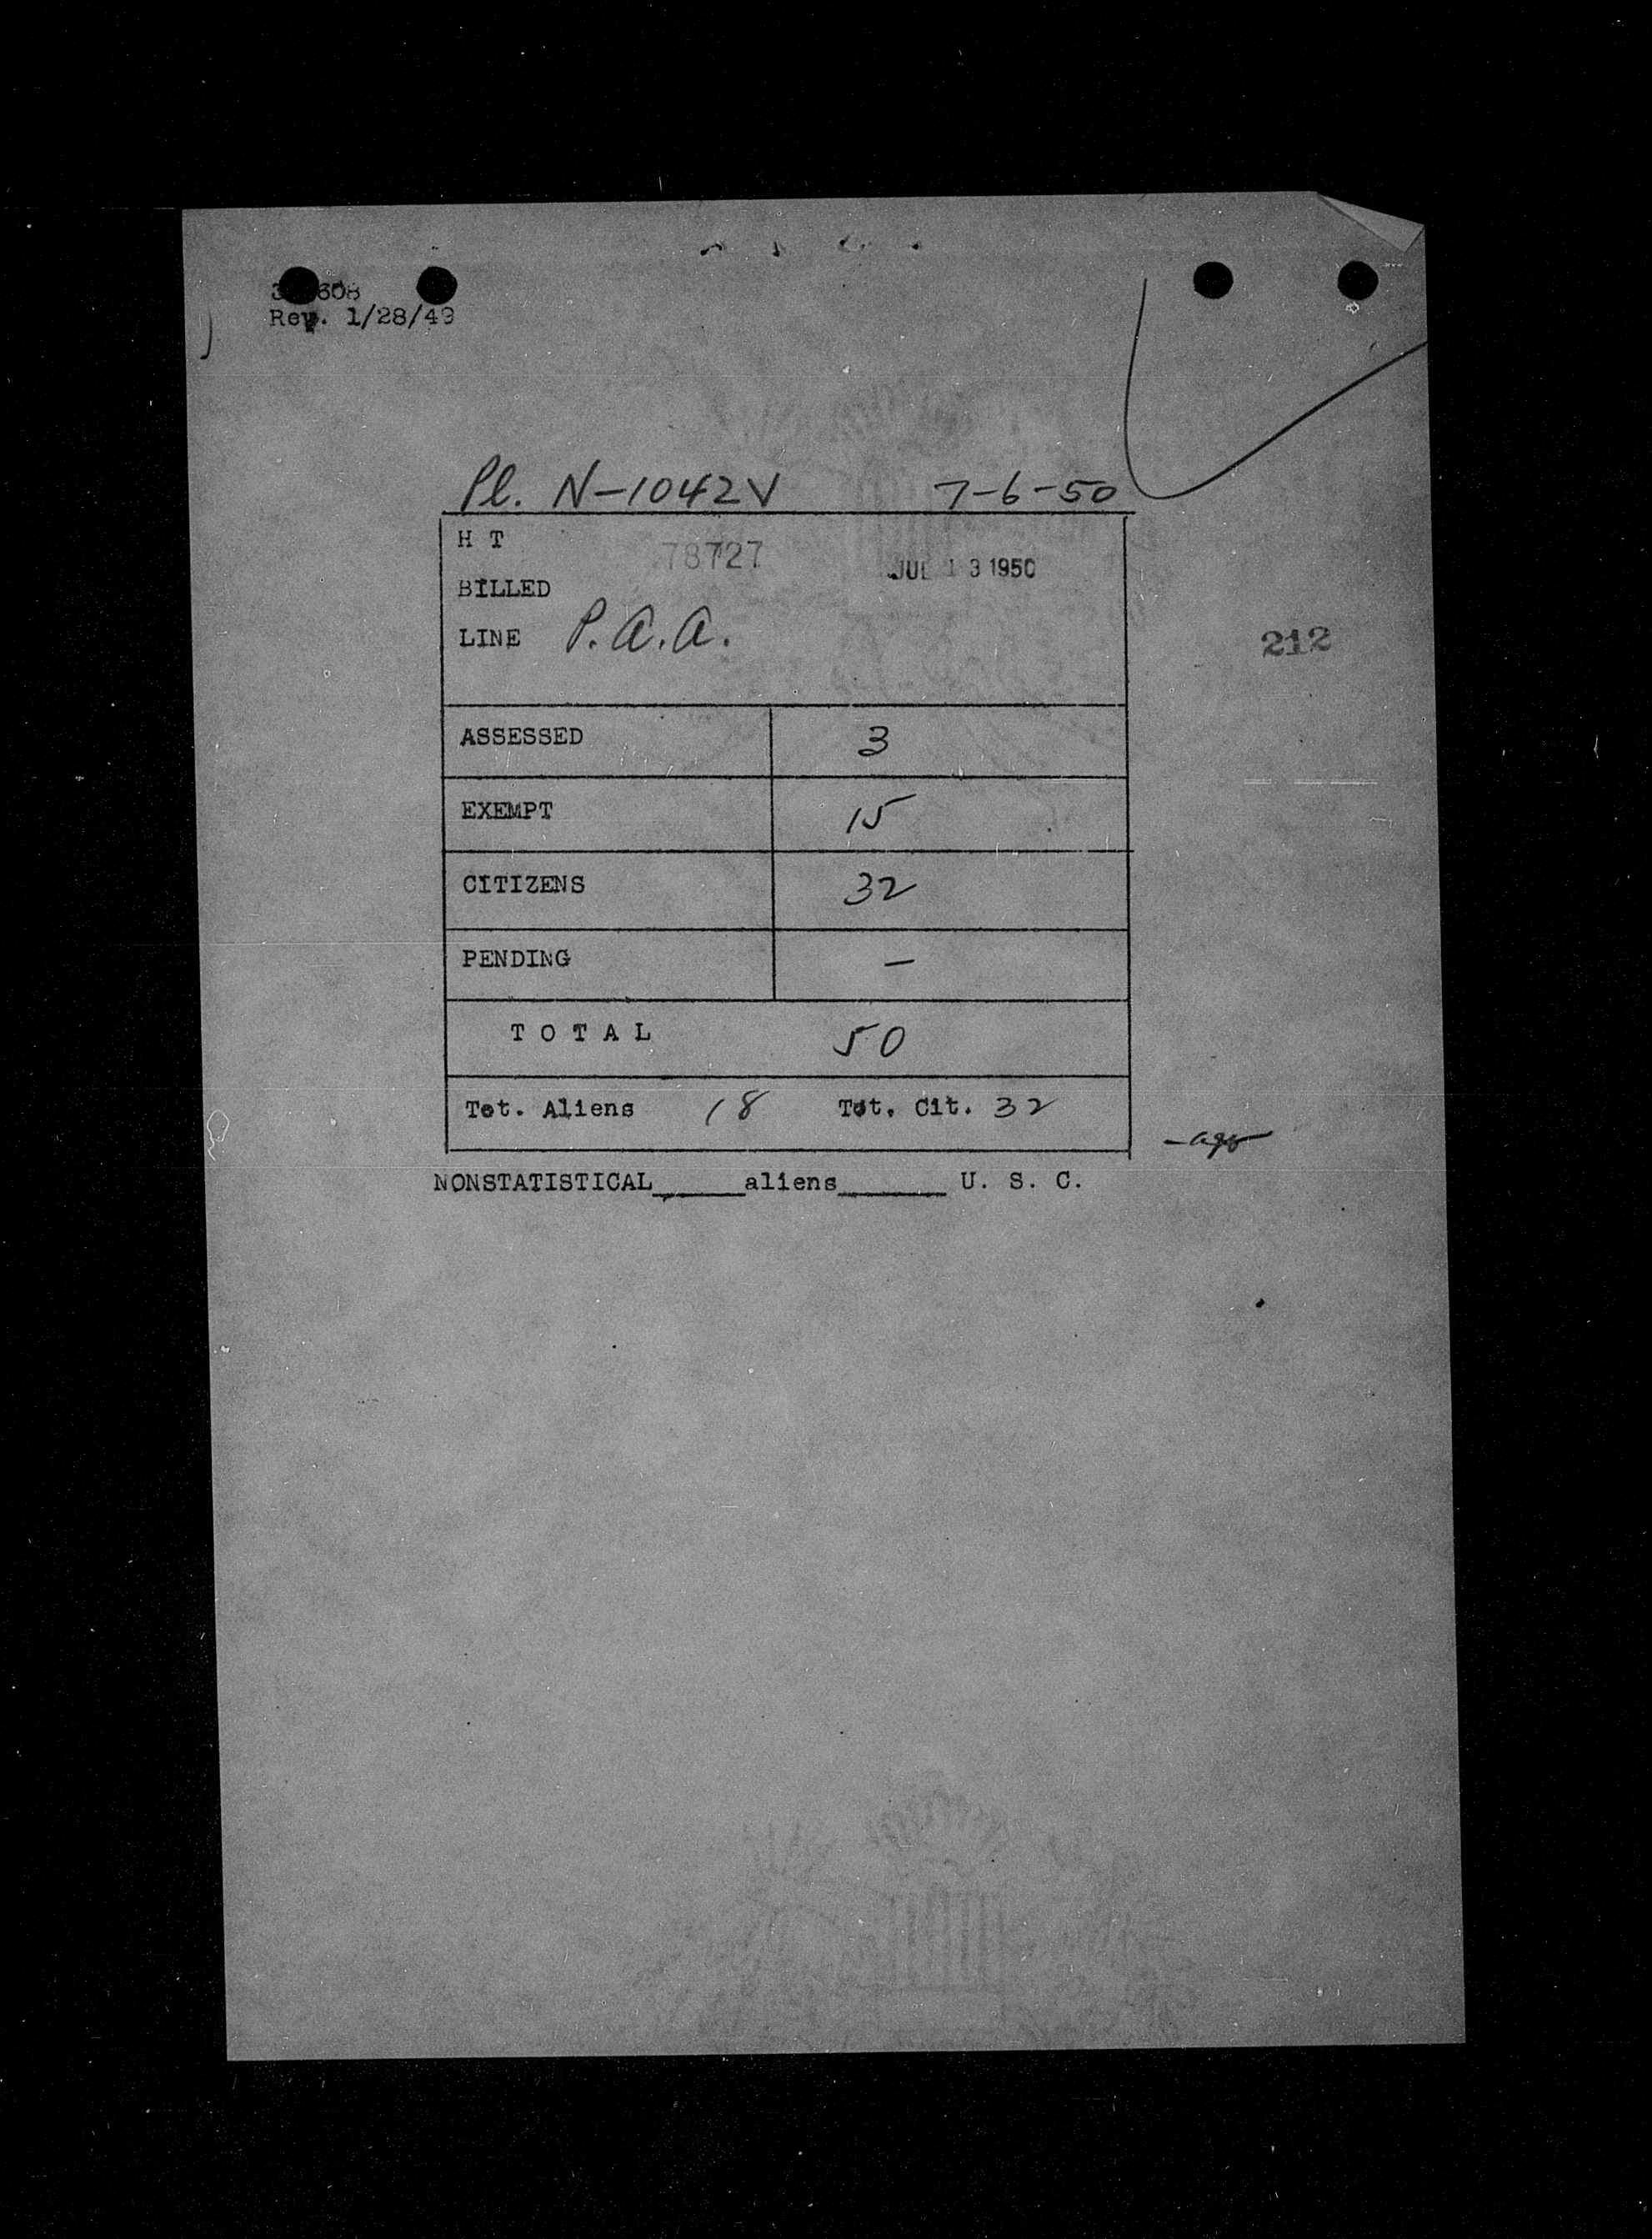 Rev. 1/28/49
Pl. N-1042V 7-6-50
H T 78727 JUL 13 1950
BILLED
LINE P.A.A.
212
ASSESSED 3
EXEMPT 15
CITIZENS 32
PENDING —
T O T A L 50
Tot. Aliens 18 Tot. Cit. 32
NONSTATISTICAL_____aliens______ U. S. C.